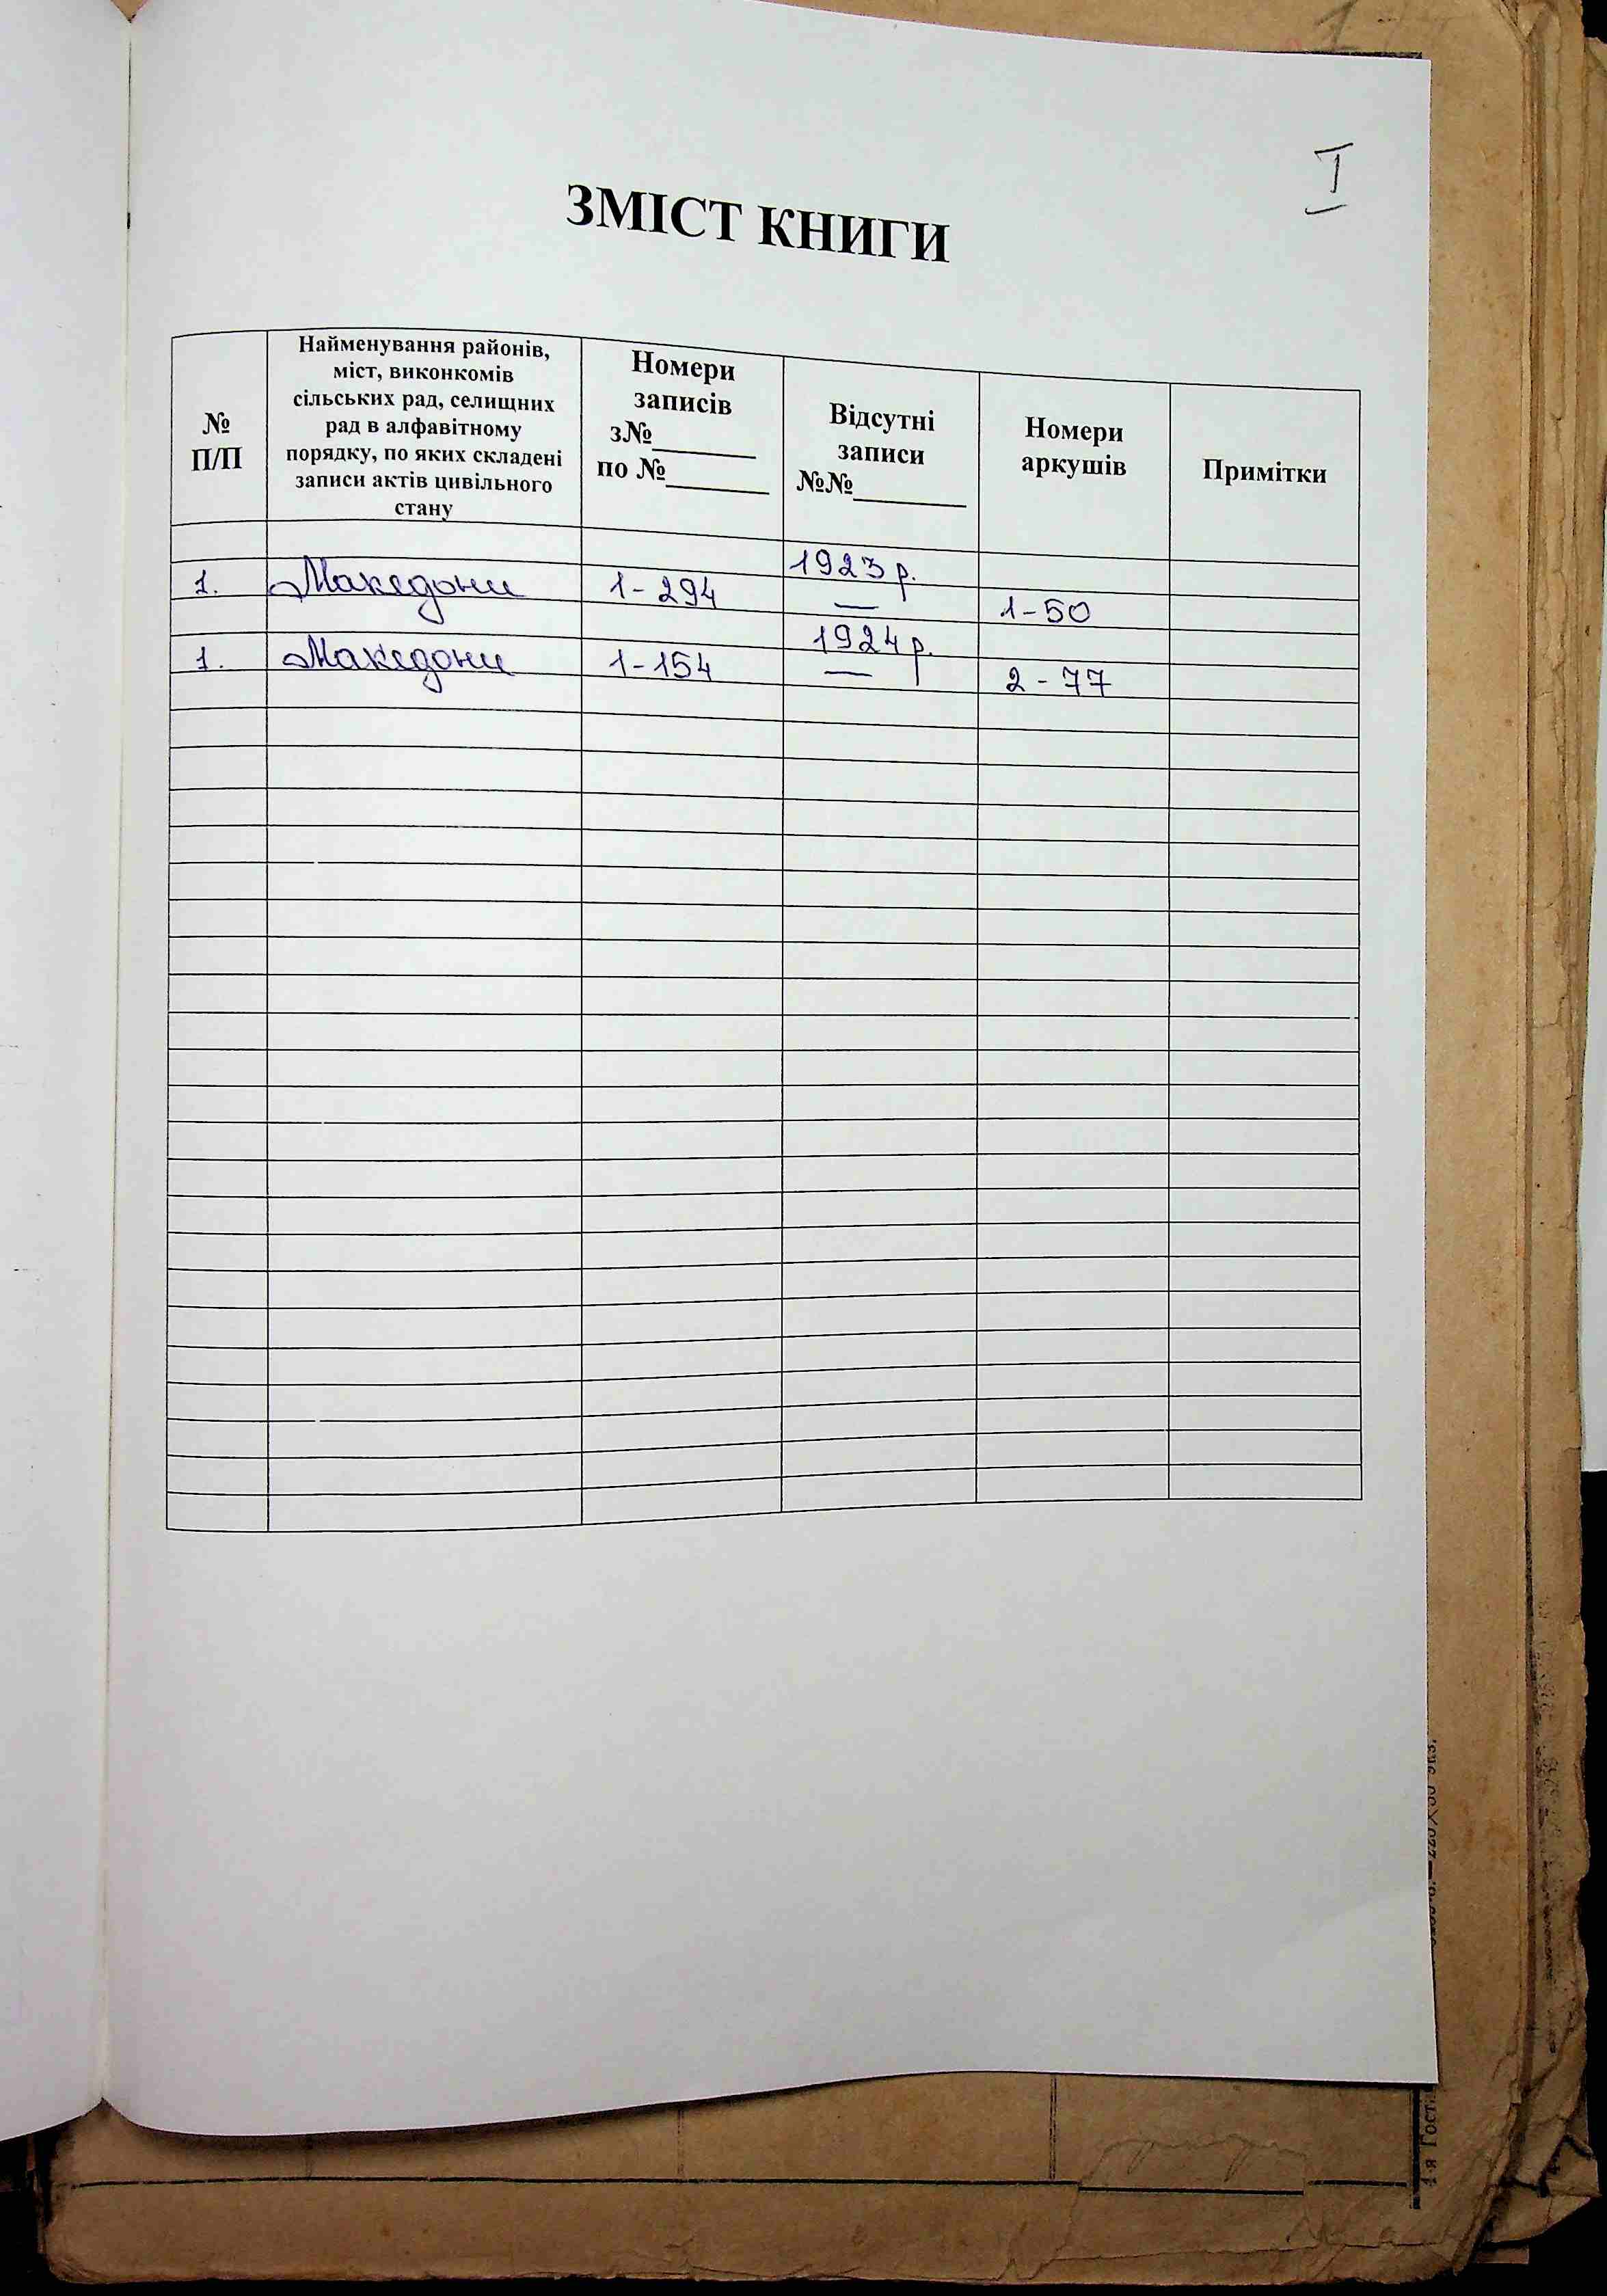 I
ЗМІСТ КНИГИ
№
П/П
Найменування районів,
міст, виконкомів
сільських рад, селищних
рад в алфавітному
порядку, по яких складені
записи актів цивільного
стану
Номери
записів
з№________
по №________
Відсутні
записи
№№________
Номери
аркушів
Примітки
1923 р.
1. Македони 1-294 — 1-50
1924 р.
1. Македони 1-154 — 2-77